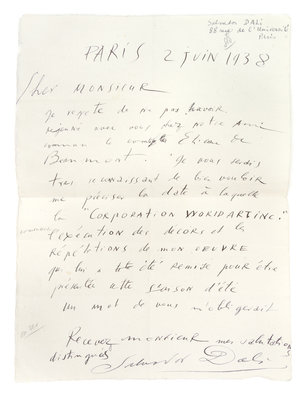 Salvador DALÍ
88 rue de l'Université
Paris
PARIS 2 JUIN 1938
Cher MONSIEUR
Je regrete de ne pas pouvoir
dejeune avec vous chez notre ami
commun le compte Etienne de
Beaumont. Je vous serais
tres reconaissant de bien vouloir
me préciser la date à laquelle
la "CORPORATION WORLD ART INC."
l'exécution des decors et la
RÉPÉTITIONS de mon OEUVRE
qui lui a
été REMISE POUR être
présentée cette saison d'été
un mot de vous m'obligerait
Recevez MONSIEUR mes salutations
distinguées
Salvador Dalí